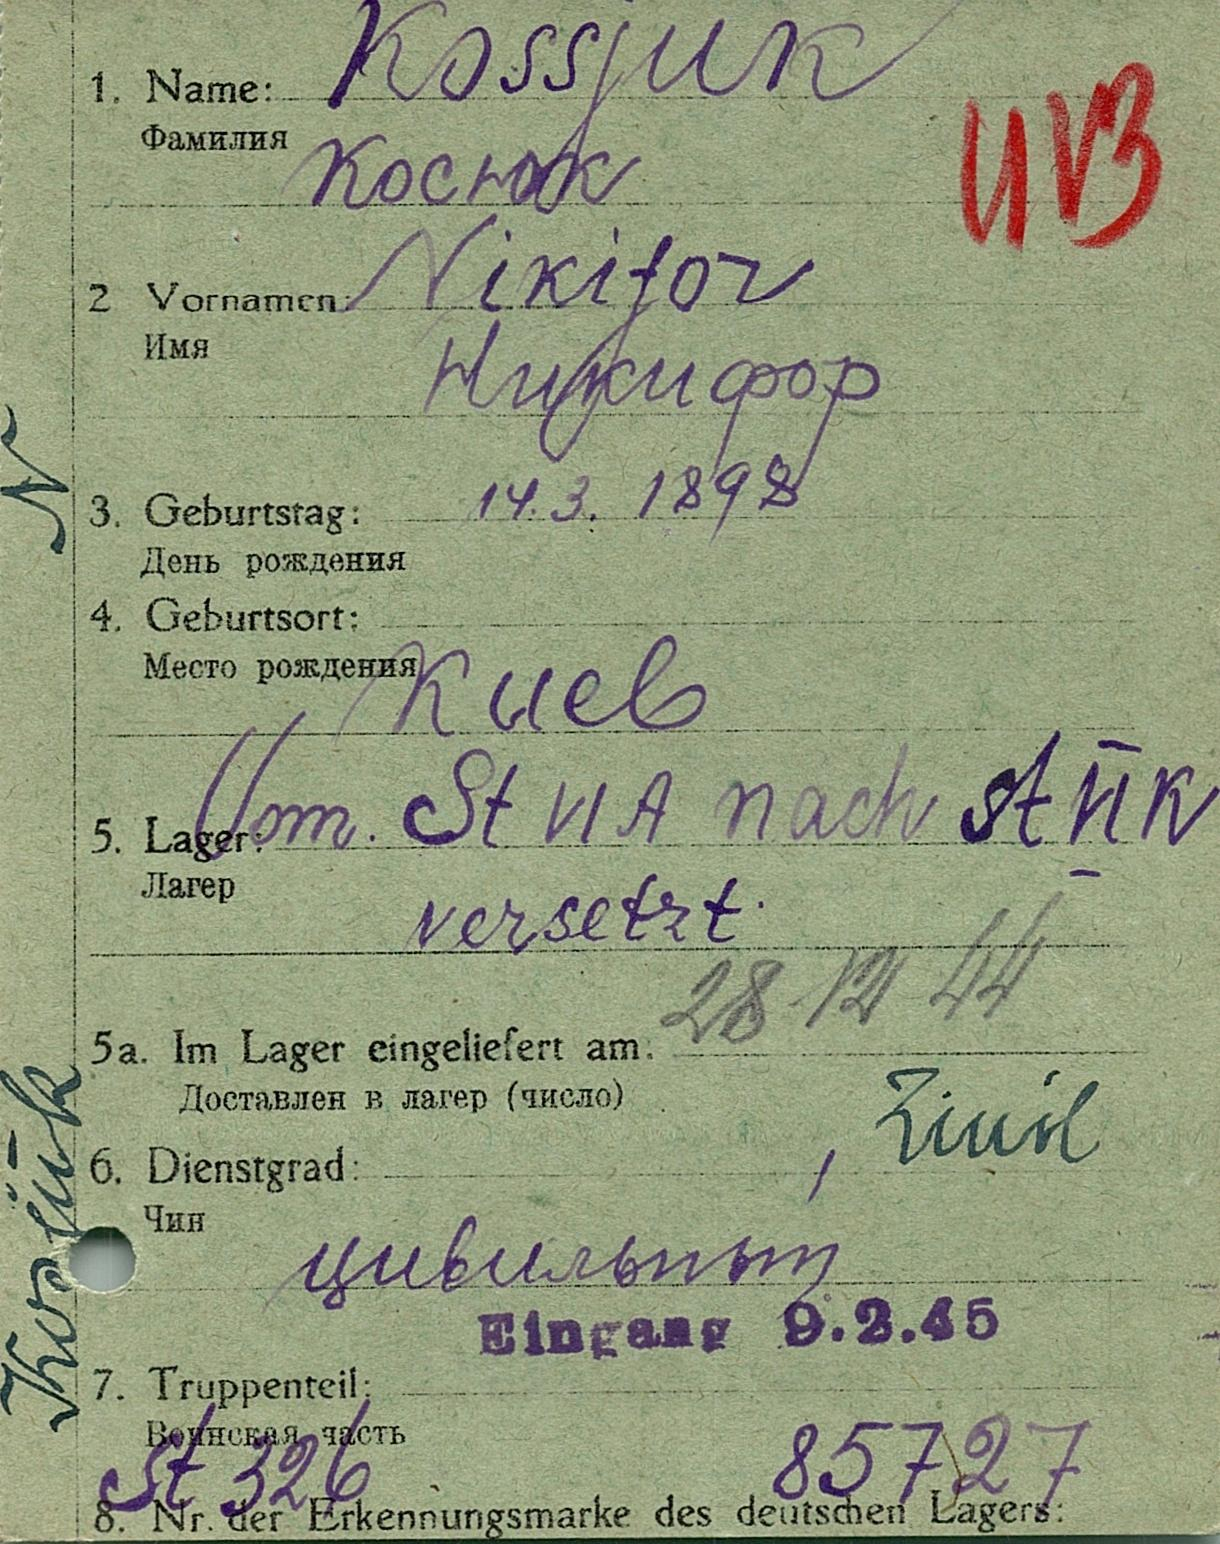 1. Name: Kossjuk
Фамилия
Косюк
UVB
2 Vornamen: Nikifor
Имя
Никифор
3. Geburtstag: 14.3. 1898
День рождения
4. Geburtsort:
Место рождения
Киев
5. Lager: Vom. St VI A nach St VI K
Лагер
versetzt.
28 12 44
5a. Im Lager eingeliefert am:
Доставлен в лагер (число)
Zivil
6. Dienstgrad:
Чин
цивильный
Eingang 9.2.45
7. Truppenteil:
Воинская часть
St 326 85727
8. Nr. der Erkennungsmarke des deutschen Lagers:
Kosük N